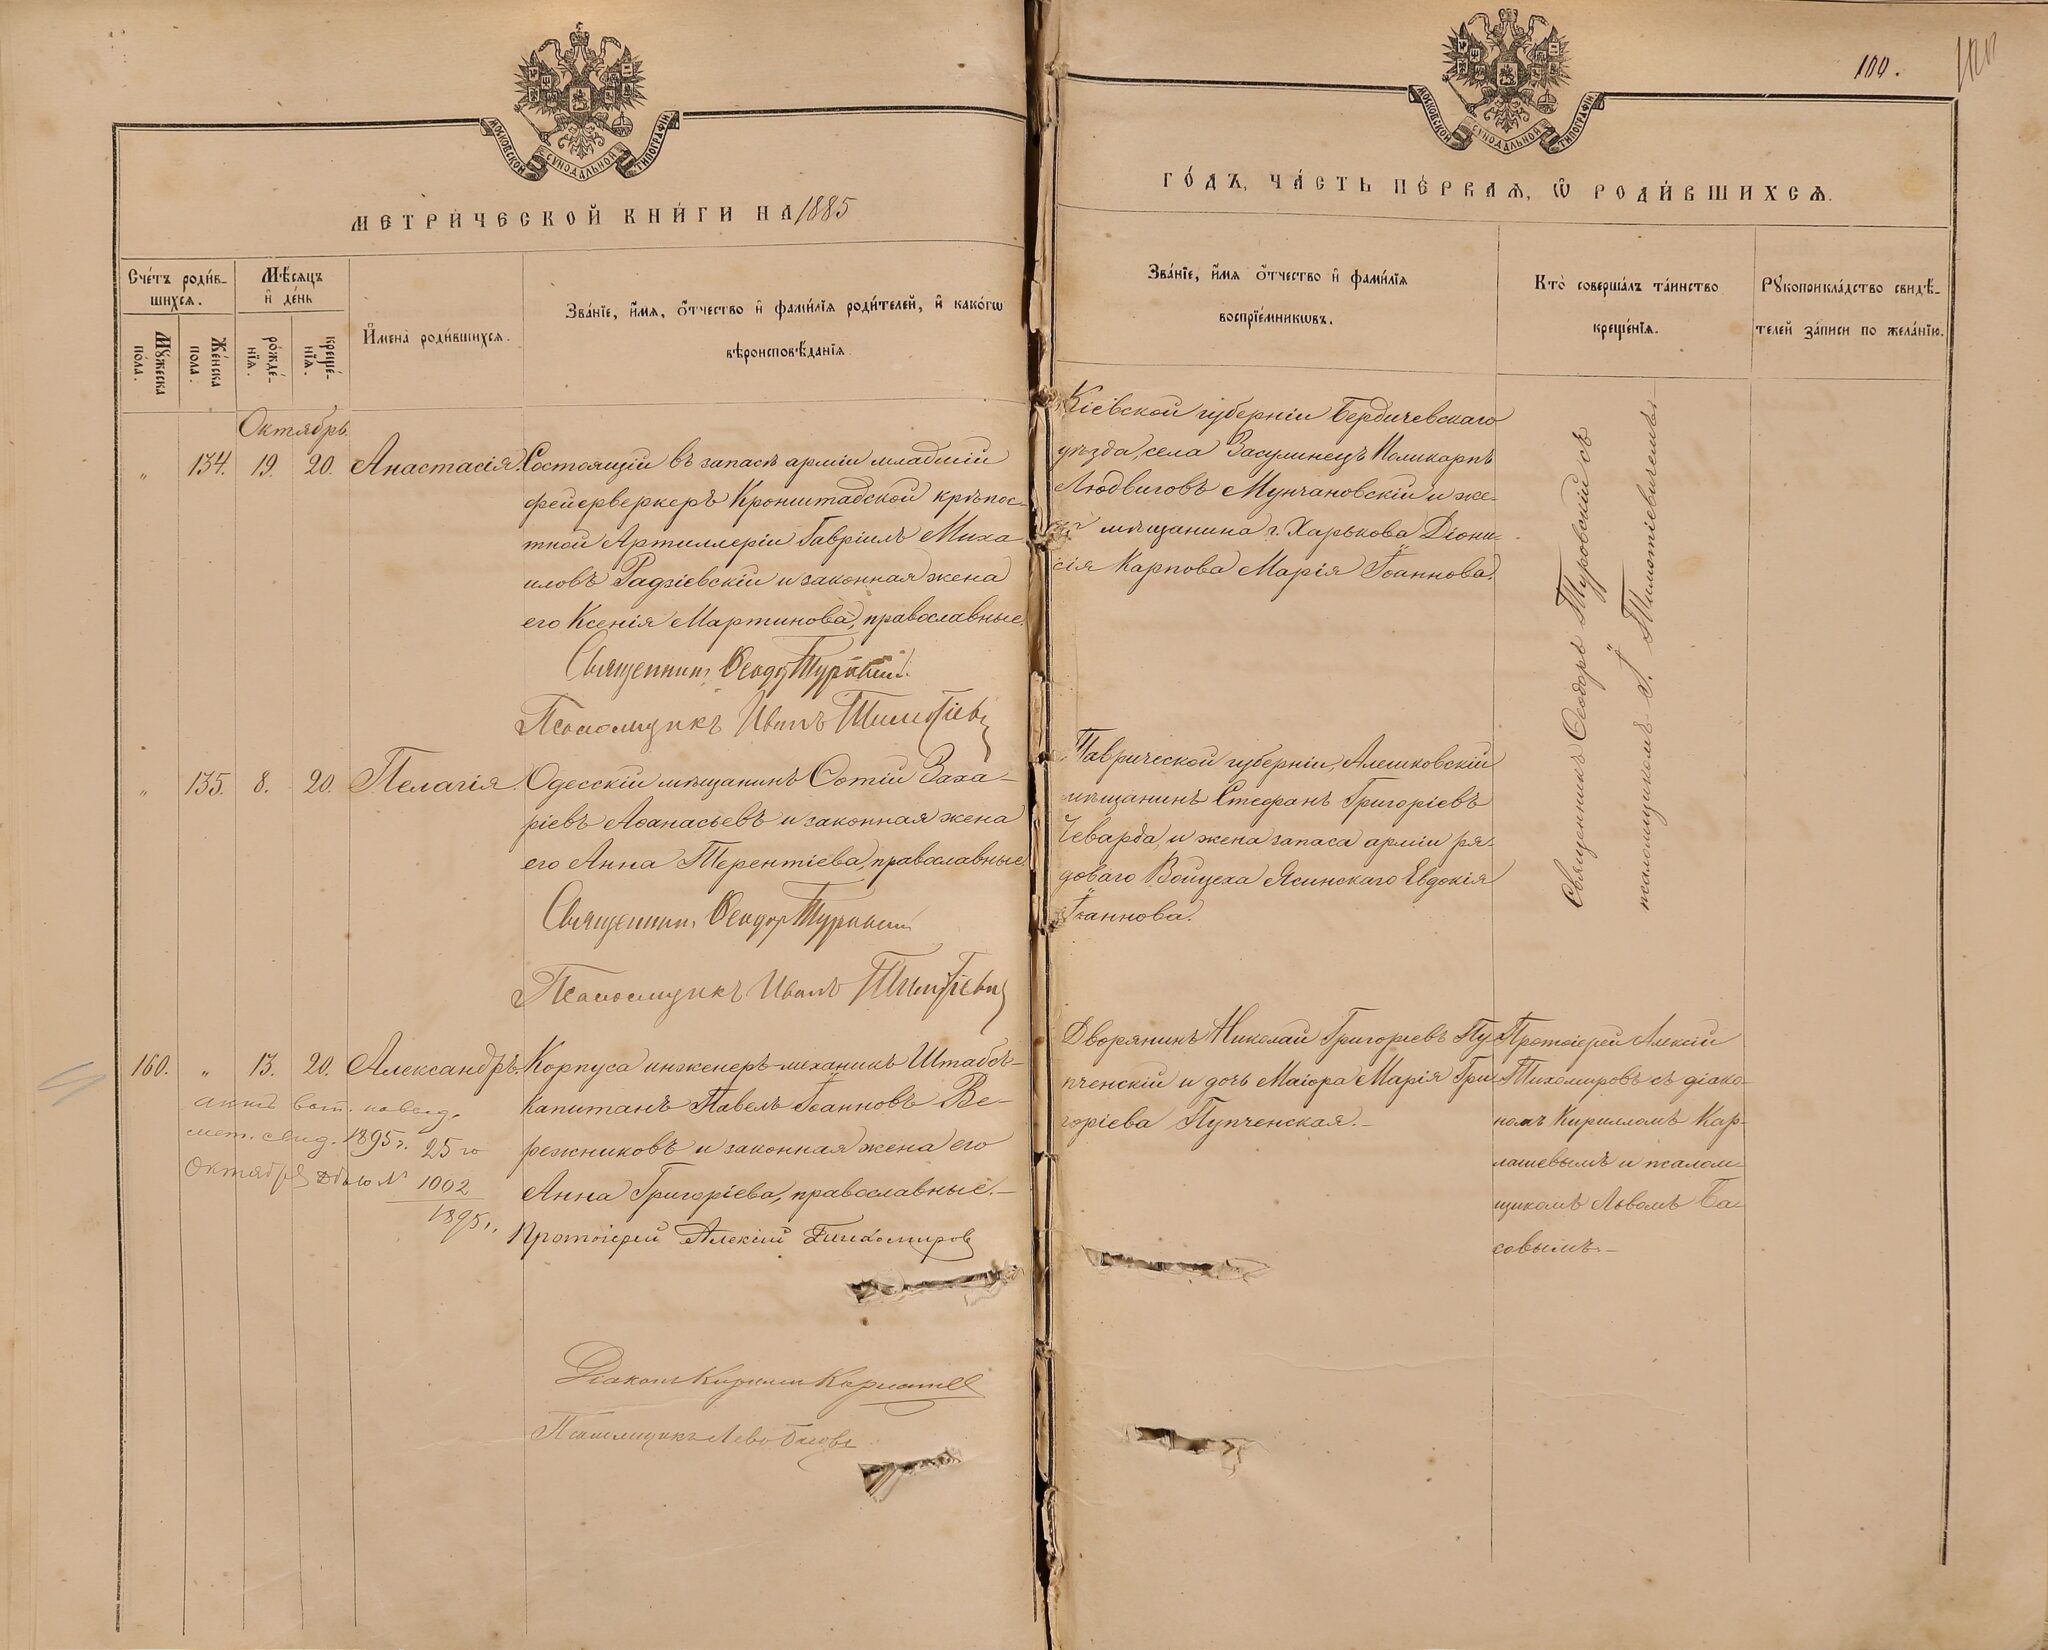 МОСКОВСКОЙ СѴНОДАЛЬНОЙ ТИПОГРАФІИ
МЕТРИ́ЧЕСКОЙ КНИ́ГИ НА 1885
Сче́тъ роди́в-
шихсѧ.
Мѣ́сѧцъ
и҆ де́нь
Мꙋ́жеска по́ла.
Же́нска по́ла.
рожде́-
нїѧ.
креще́-
нїѧ.
И҆мена̀ роди́вшихсѧ.
Зва́нїе, и҆́мѧ, ѻ҆́тчество и҆ фами́лїѧ роди́телей, и҆ како́гѡ
вѣроисповѣ́данїѧ
Октябрь.
„ 134. 19. 20. Анастасія.
Состоящій въ запасѣ арміи младшій
фейерверкеръ Кронштадской крѣпос-
тной Артиллеріи Гавріилъ Миха-
иловъ Радзіевскій и законная жена
его Ксенія Мартинова, православные.
Священникъ Ѳеодоръ Туровскій
Псаломщикъ Иванъ Тимотіевичъ
„ 135. 8. 20. Пелагія.
Одесскій мѣщанинъ Сотій Заха-
ріевъ Аѳанасьевъ и законная жена
его Анна Терентіева, православные.
Священникъ Ѳеодоръ Туровскій
Псаломщикъ Иванъ Тимотіевичъ
160. „ 13. 20. Александръ.
Корпуса инженеръ-механикъ Штабсъ-
Капитанъ Павелъ Іоанновъ Ве-
режниковъ и законная жена его
Анна Григоріева, православные.—
Протоіерей Алексій Тихомировъ
Діаконъ Кириллъ Карлашевъ
Псаломщикъ Левъ Басовъ
мет. свид. 1895 г. 25 го
Октября № 1002
1895 г.
109.
МОСКОВСКОЙ СѴНОДАЛЬНОЙ ТИПОГРАФІИ
ГО́ДЪ, ЧА́СТЬ ПЕ́РВАѦ, Ѡ҆ РОДИ́ВШИХСѦ.
Зва́нїе, и҆́мѧ ѻ҆́тчество и҆ фами́лїѧ
воспрїе́мникѡвъ.
Кто̀ соверша́лъ та́инство
креще́нїѧ.
Рꙋкоприкла́дство свидѣ́-
телей за́писи по жела́нїю.
Кіевской губерніи Бердичевскаго
уѣзда, села Засулинецъ Поликарпъ
Людвиговъ Мунчановскій и же-
мѣщанина г. Харькова Діони-
сія Карпова Марія Іоаннова.
Священникъ Ѳеодоръ Туровскій съ
псаломщикомъ І. Тимотіевичемъ.
Таврической губерніи, Алешковскій
мѣщанинъ Стефанъ Григоріевъ
Чеварда, и жена запаса арміи ря-
доваго Войцеха Ясинскаго Евдокія
Іоаннова.
Дворянинъ Николай Григорьевъ Пу-
пченскій и дочь Маіора Марія Гри-
горіева Пупченская.—
Протоіерей Алексій
Тихомировъ съ діако-
номъ Кирилломъ Кар-
лашевымъ и псалом-
щикомъ Львомъ Ба-
совымъ.—